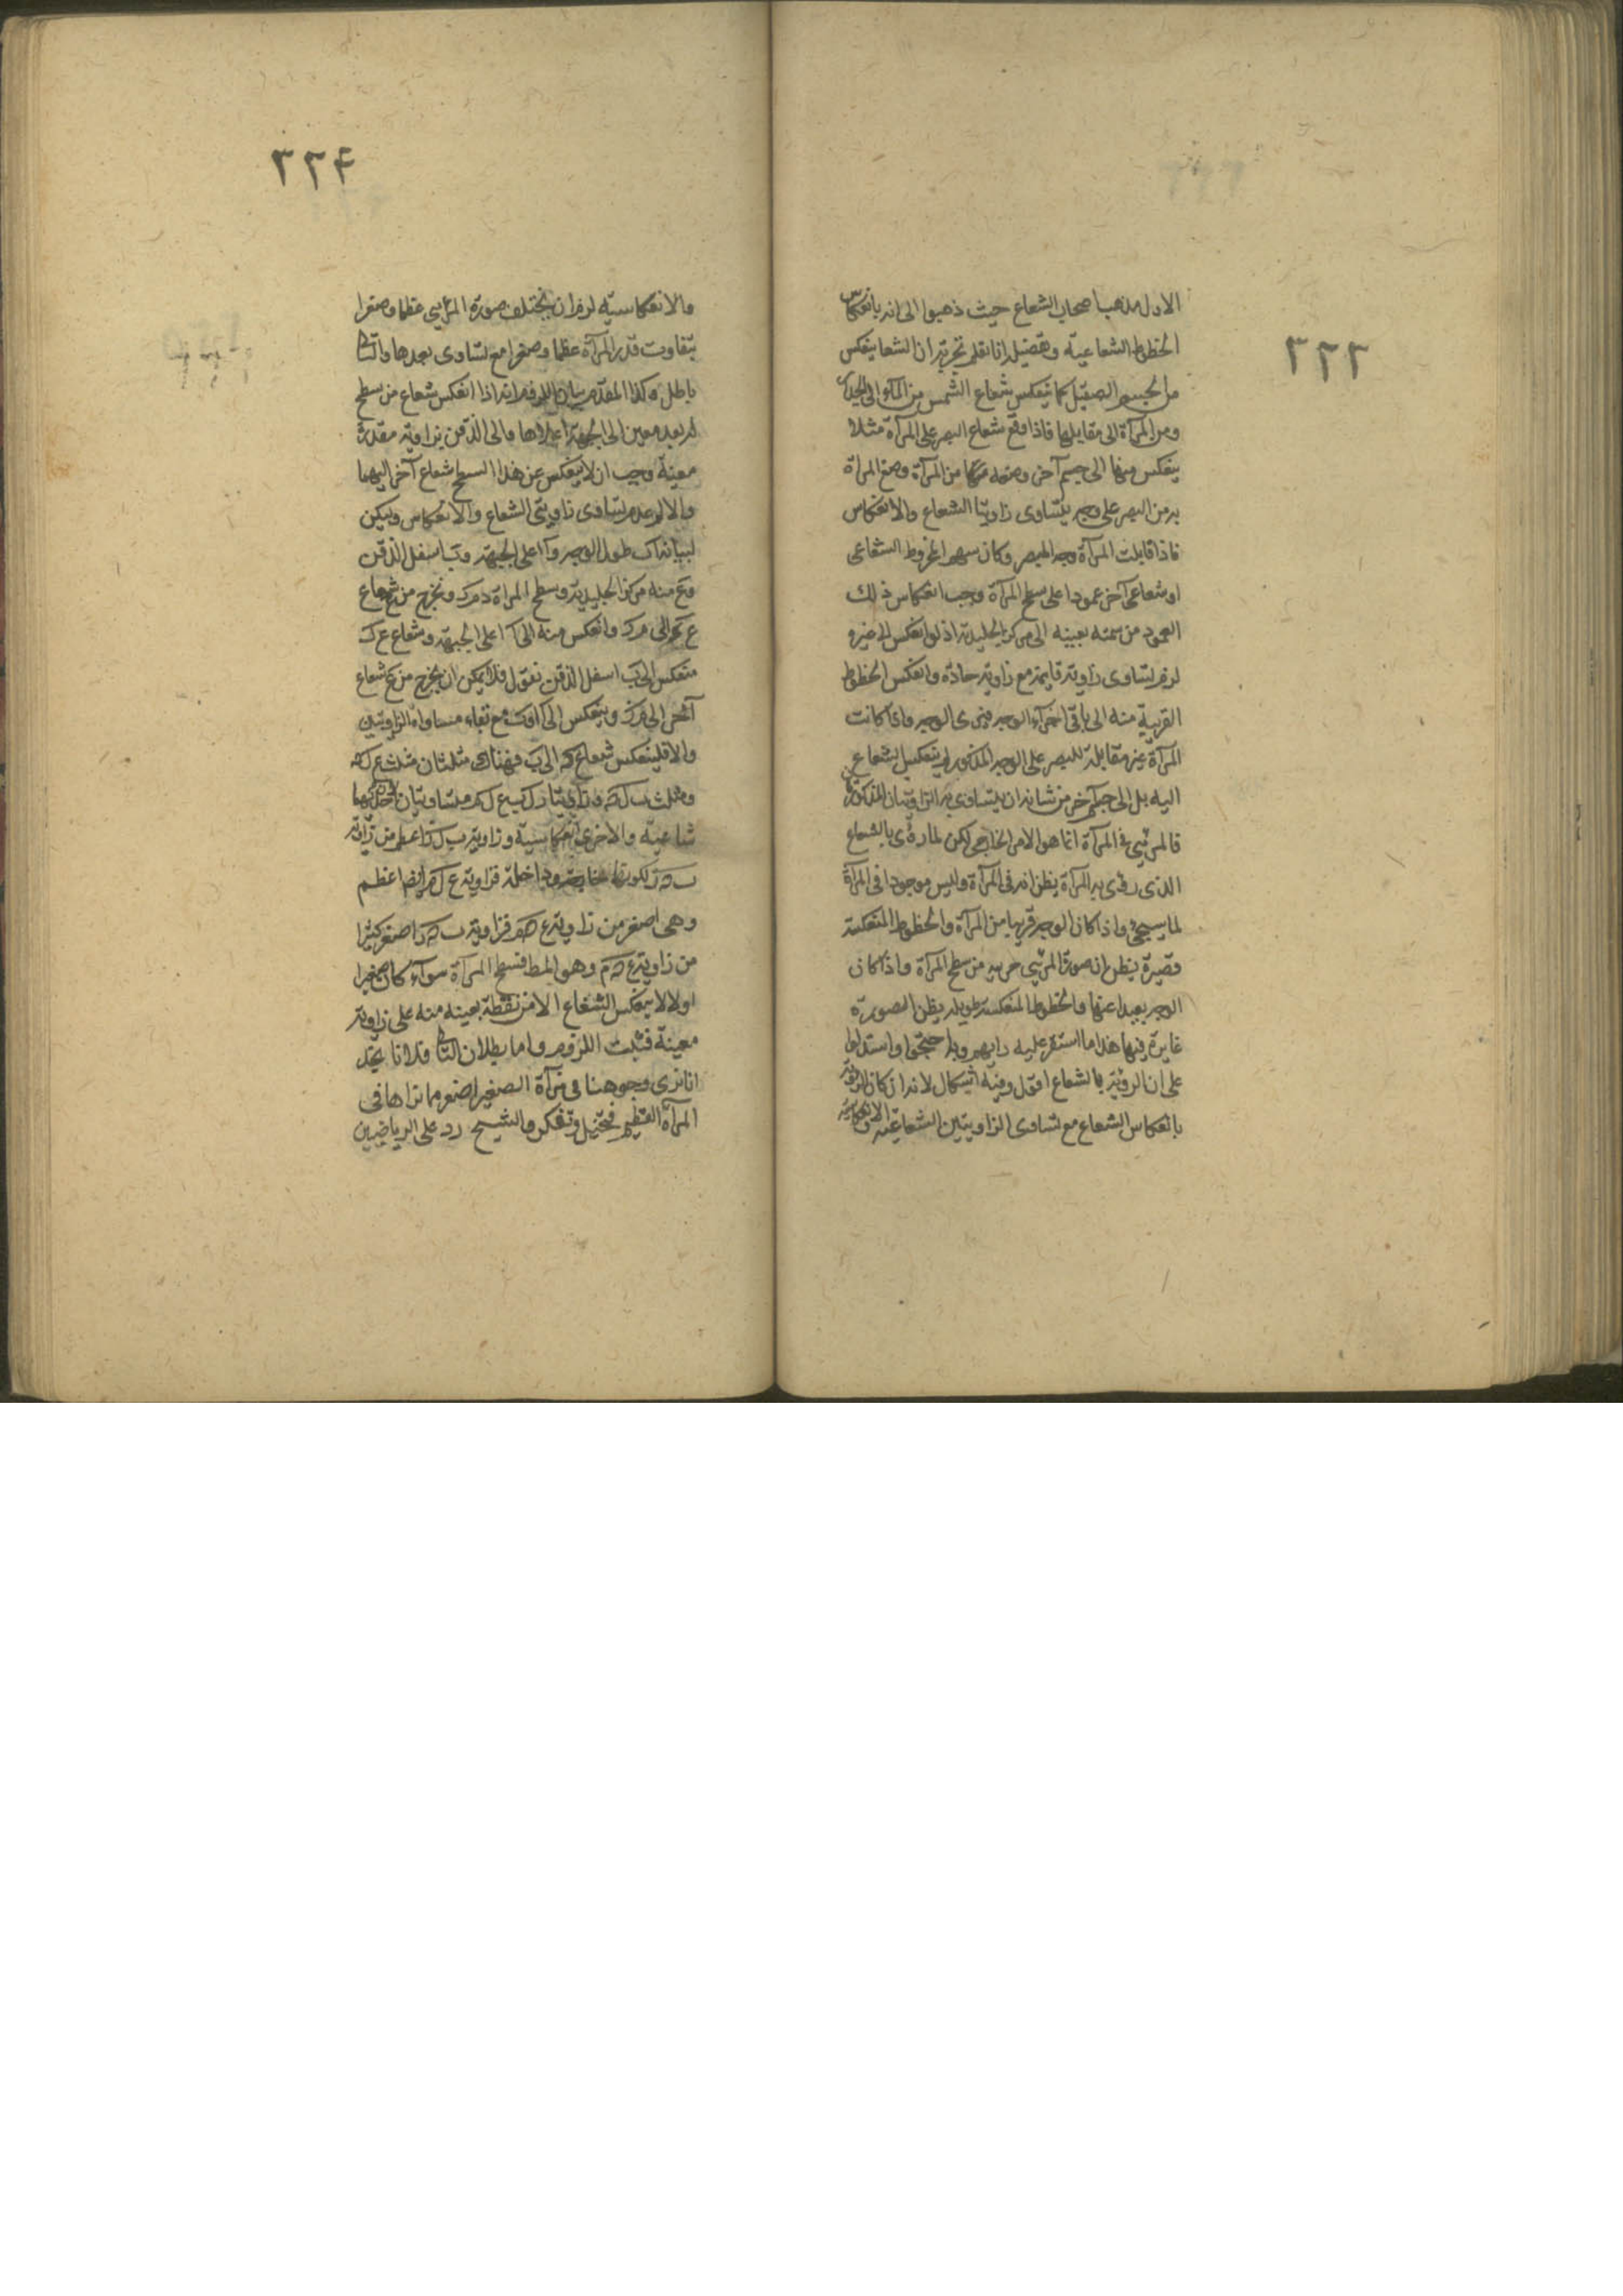 ٣٢٣
الاول مذهب اصحاب الشعاع حيث ذهبوا الى انه بانعكاس
الخطوط الشعاعية وتفصيله انا نعلم تجربة ان الشعا ينعكس
من الجسم الصقيل كما ينعكس شعاع الشمس من الماء الى الجدار
ومن المرآة الى مقابلها فاذا وقع شعاع البصر على المرآة مثلا
ينعكس منها الى جسم آخر وضعه من المرآة وضع المراة
من البصر على وجه يتساوى زاويتا الشعاع والانعكاس
فاذا قابلت المرآة وجه المبصر وكان سهم المخروط الشعاعى
او شعاعى آخر عمودا على سطح المرآة وجب انعكاس ذلك
العمود من سمته بعينه الى مركز الجليدية اذ لو انعكس الى غيره
لزم تساوى زاوية قايمة مع زاوية حادة وانعكس الخطوط
القريبة منه الى باقى اجزاء الوجه فيرى الوجه وان كانت
المرآة غير مقابلة للبصر على الوجه المذكور لم ينعكس الشعاع
اليه بل الى جسم آخر من شانه ان يتساوى به الزاويتان المذكورتان
فالمرئى فى المرآة انما هو الامر الخارجى لكن لما رؤى بالشعاع
الذى رؤى به المرآة يظن انه فى المرآة وليس موجودا فى المرآة
لما سيجئ واذا كان الوجه قريبا من المرآة والخطوط المنعكسة
قصيرة يظن ان صورة المرئى قريبة من سطح المرآة واذا كان
الوجه بعيدا عنها والخطوط المنعكسة طويلة يظن الصورة
غايرة فيها هذا ما استقر عليه رايهم وبه احتجوا واستدلوا
على ان الرؤية بالشعاع اقول وفيه اشكال لانه ان كان الرؤية
بانعكاس الشعاع مع تساوى الزاويتين الشعاعية والانعكاسية
٣٢٤
والانعكاسية لزم ان يختلف صورة المرئى عظما وصغرا
بتفاوت قدر المرآة عظما وصغرا مع تساوى بعدها والتالى
باطل وكذا المقدم بيان اللزوم انه اذا انعكس شعاع من سطح
له بعد معين الى الجبهة اعلاها والى الذقن بزاوية مقدرة
معينة وجب ان لا ينعكس عن هذا السطح شعاع آخر اليهما
والا لزم عدم تساوى زاويتى الشعاع والانعكاس وليكن
لبيانه ا ب طول الوجه و ا اعلى الجبهة و ب اسفل الذقن
و ع منه مركز الجليدية وسطح المراة د م ك ونخرج من ع شعاع
وانعكس منه الى ا اعلى الجبهة وشعاع ع ك
منعكس الى ب اسفل الذقن نقول فلا يمكن ان يخرج من ع شعاع
آخر الى وينعكس الى ا او ب مع بقاء مساواة الزاويتين
والا فلينعكس شعاع الى ب فهناك مثلثان مثلث
ومثلث وزاويتا متساويتان احديهما
شاعية والاخرى انعكاسية وزاوية اعظم من زاوية
لكونها خارجة و داخلة فزاوية ايضا اعظم
وهى اصغر من زاوية فزاوية اصغر كثيرا
من زاوية وهو المط فسطح المرآة سوآء كان صغيرا
اولا لا ينعكس الشعاع الا من نقطة بعينه منه على زاوية
معينة فثبت اللزوم واما بطلان التالى فلانا نجد
انا نرى وجوهنا فى مرآة الصغير اصغر مما نراها فى
المرآة العظيم فتخيل وتفكر والشيخ رد على الرياضيين